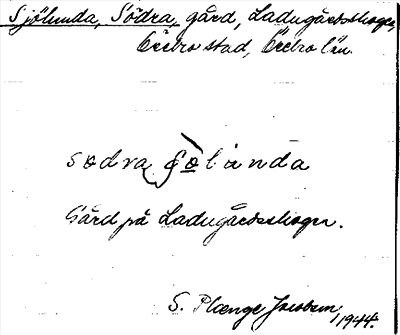 Sjölunda, Södra, gård, Ladugårdsskogen,
Örebro stad, Örebro län.
södra
Gård på Ladugårdsskogen.
S. Plænge Jacobson
1944.